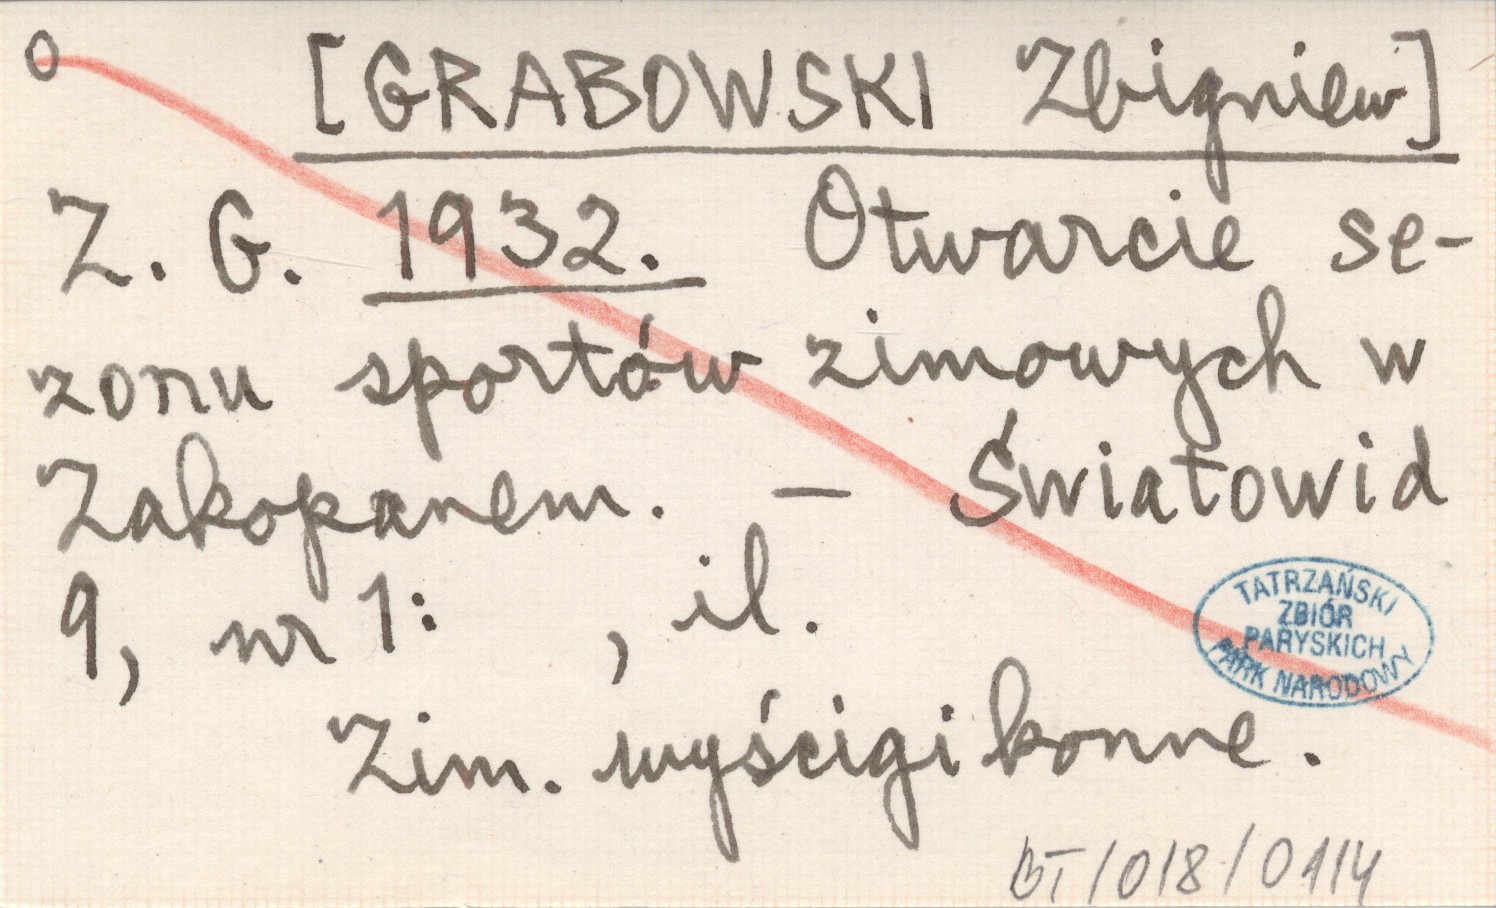 O [GRABOWSKI Zbigniew]
Z. G. 1932. Otwarcie se-
zonu sportów zimowych w
Zakopanem. – Światowid
9, nr 1: , il.
TATRZAŃSKI
ZBIÓR
PARYSKICH
PARK NARODOWY
Zim. wyścigi konne.
BT/018/0114